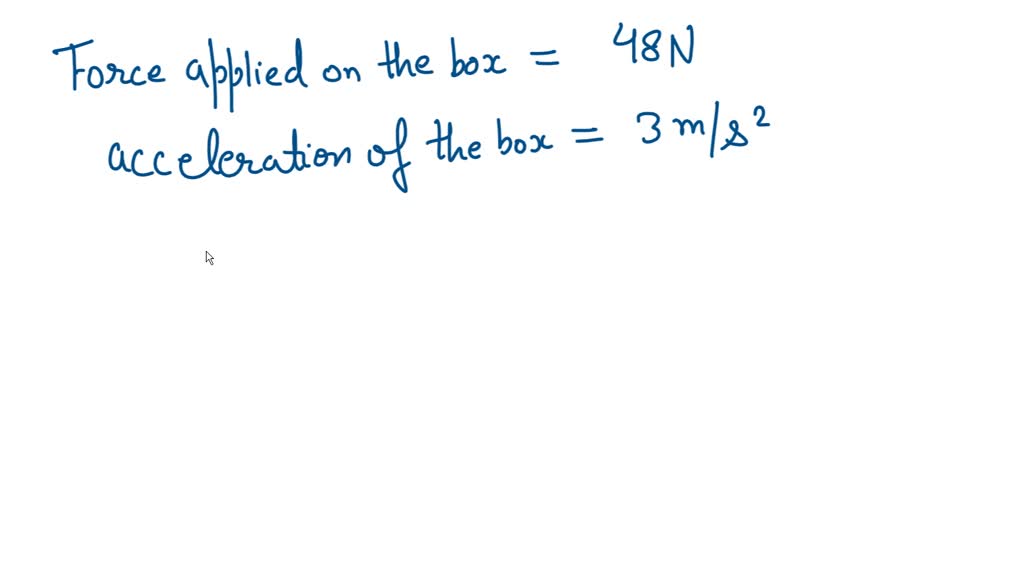 Force applied on the box = 48N
acceleration of the box = 3 m/s²